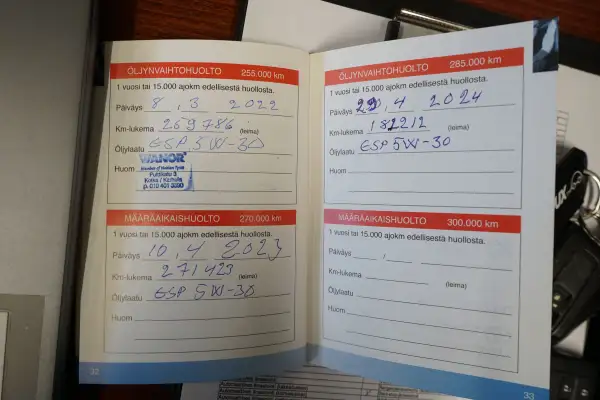 ÖLJYNVAIHTOHUOLTO 255.000 km
1 vuosi tai 15.000 ajokm edellisestä huollosta.
Päiväys 8 . 3 2022
Km-lukema 259786 (leima)
Öljylaatu ESP 5W-30
Huom
WANOR
Puutarhakatu 3
p. 010 401 3390
MÄÄRÄAIKAISHUOLTO 270.000 km
1 vuosi tai 15.000 ajokm edellisestä huollosta.
Päiväys 10 . 4 2023
Km-lukema 271423 (leima)
Öljylaatu ESP 5W-30
Huom
32
ÖLJYNVAIHTOHUOLTO 285.000 km
1 vuosi tai 15.000 ajokm edellisestä huollosta.
Päiväys 29 . 4 2024
Km-lukema 182212 (leima)
Öljylaatu ESP 5W-30
Huom
MÄÄRÄAIKAISHUOLTO 300.000 km
1 vuosi tai 15.000 ajokm edellisestä huollosta.
Päiväys
Km-lukema (leima)
Öljylaatu
Huom
33